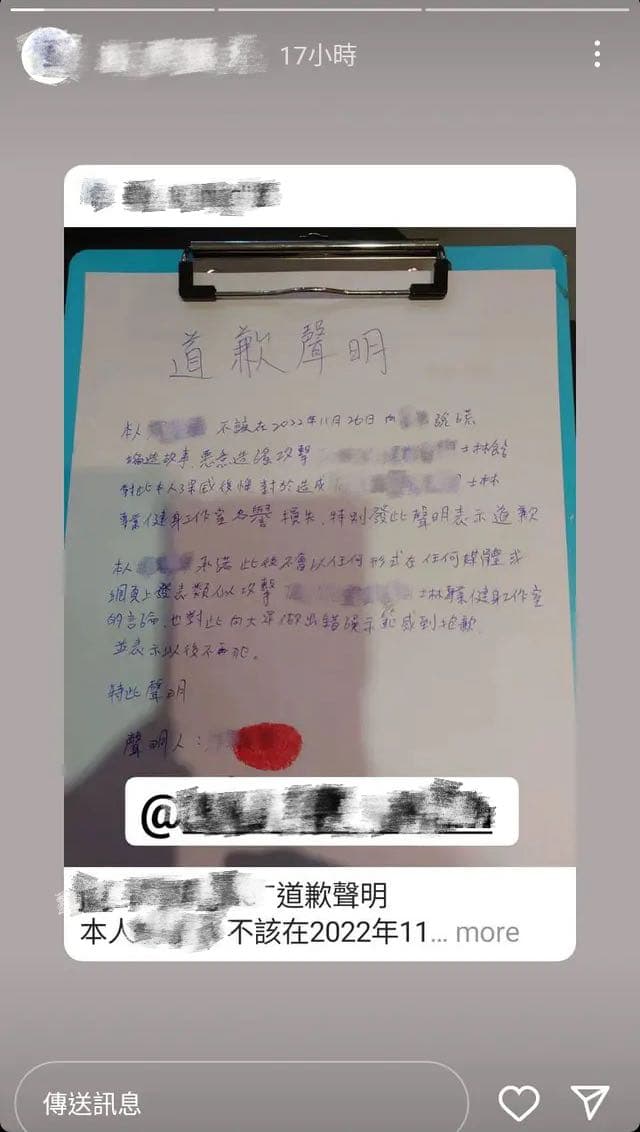 17小時
道歉聲明
本人 不該在2022年11月26日向 說謊
編造故事,惡意造謠攻擊 士林館
對此本人深感後悔對於造成 士林
專業健身工作室名譽損失,特別發此聲明表示道歉
本人 承諾此後不會以任何形式在任何媒體或
網頁上發表類似攻擊 士林專業健身工作室
的言論,也對此向大眾做出錯誤示範感到抱歉
並表示以後不再犯。
特此聲明
聲明人:
@
道歉聲明
本人 不該在2022年11... more
傳送訊息